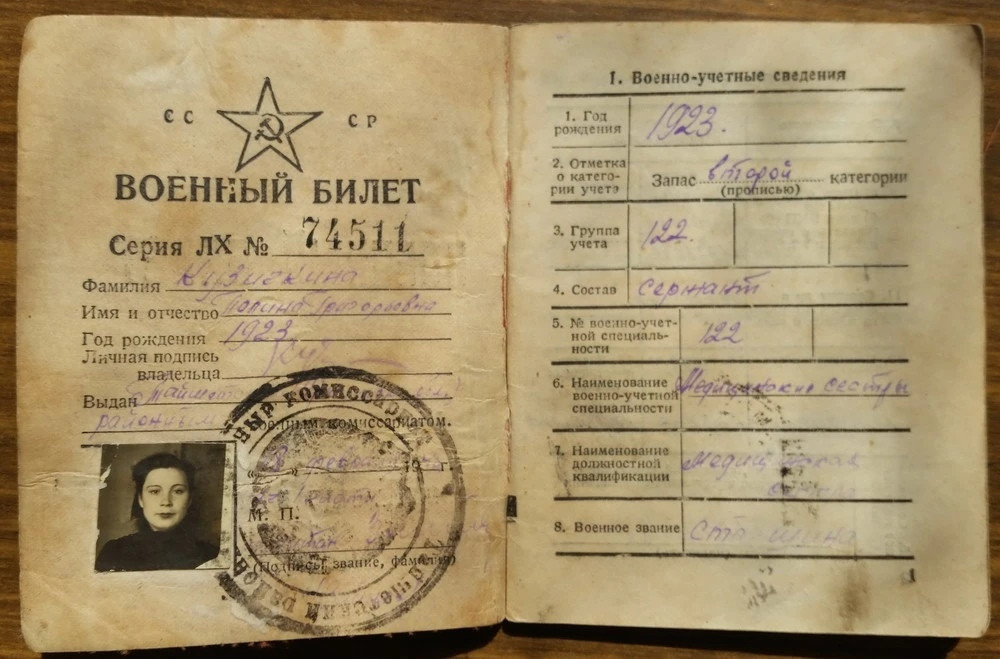 СС СР
ВОЕННЫЙ БИЛЕТ
Серия ЛХ № 74511
Фамилия Кузичкина
Имя и отчество Полина Григорьевна
Год рождения 1923
Личная подпись
владельца
Выдан
районным военным комиссариатом.
М. П.
(Подпись, звание, фамилия)
I. Военно-учетные сведения
1. Год
рождения 1923.
2. Отметка
о катего-
рии учета
Запас второй категории
(прописью)
3. Группа
учета 122.
4. Состав сержант
5. № военно-учет-
ной специаль-
ности 122
6. Наименование
военно-учетной
специальности
Медицинские сестры
7. Наименование
должностной
квалификации
Медицинская
8. Военное звание старшина